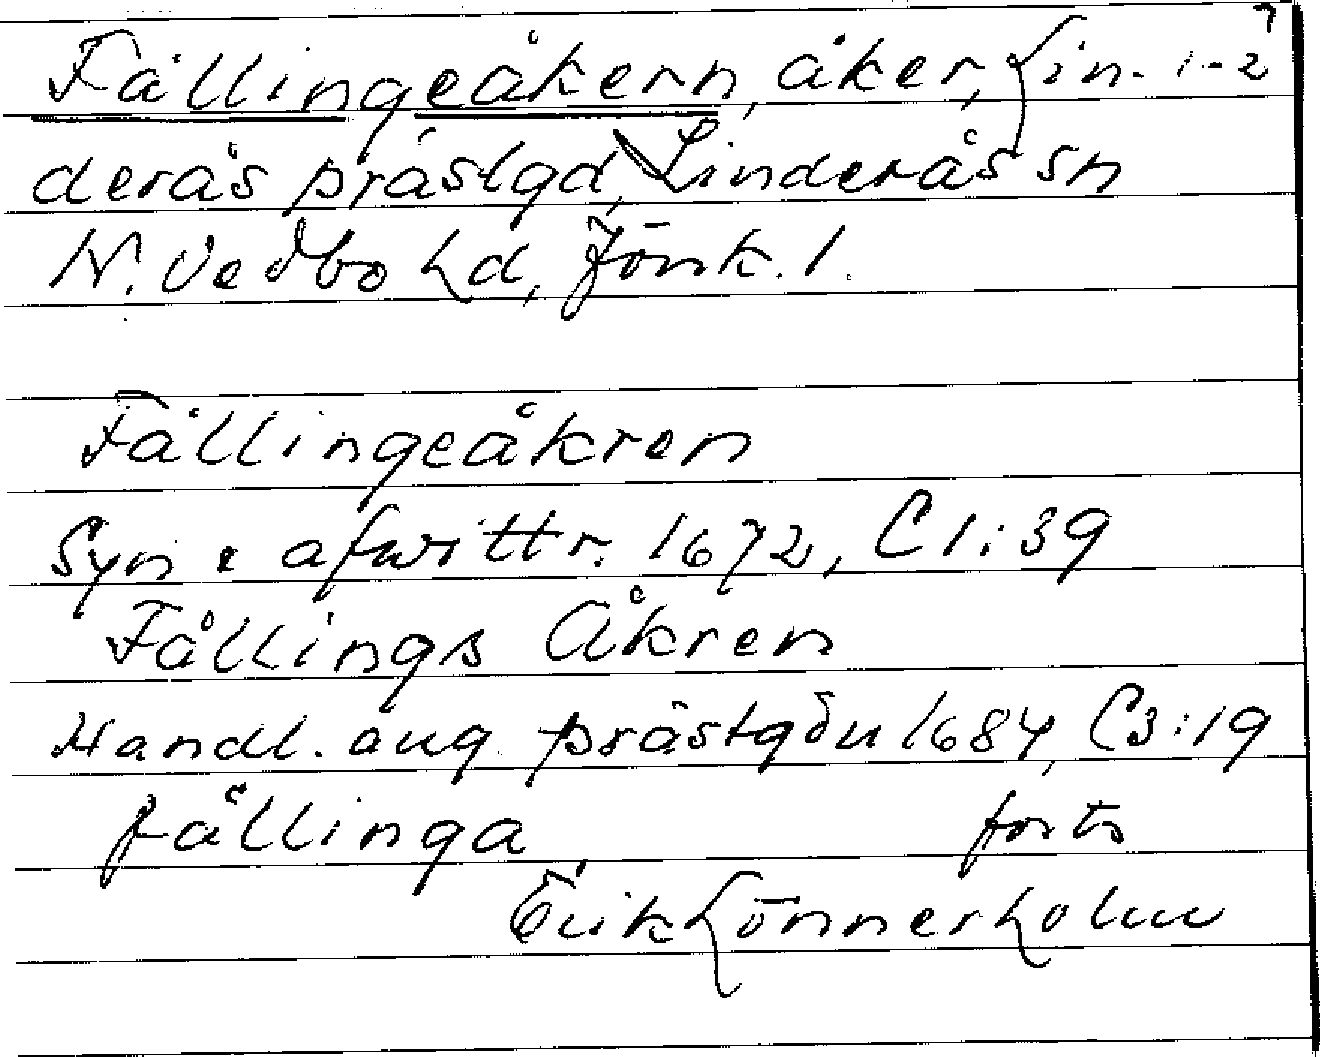 Fållingeåkern, åker, Lin- 1-2
derås prästgd, Linderås sn
N. Vedbo hd, Jönk. l.
Fållingeåkren
Syn. & afwittr. 1672, C1:39
Fållings Åkren
Handl. ang. prästgdn 1684, C3:19
fållinga forts
Erik Lönnerholm